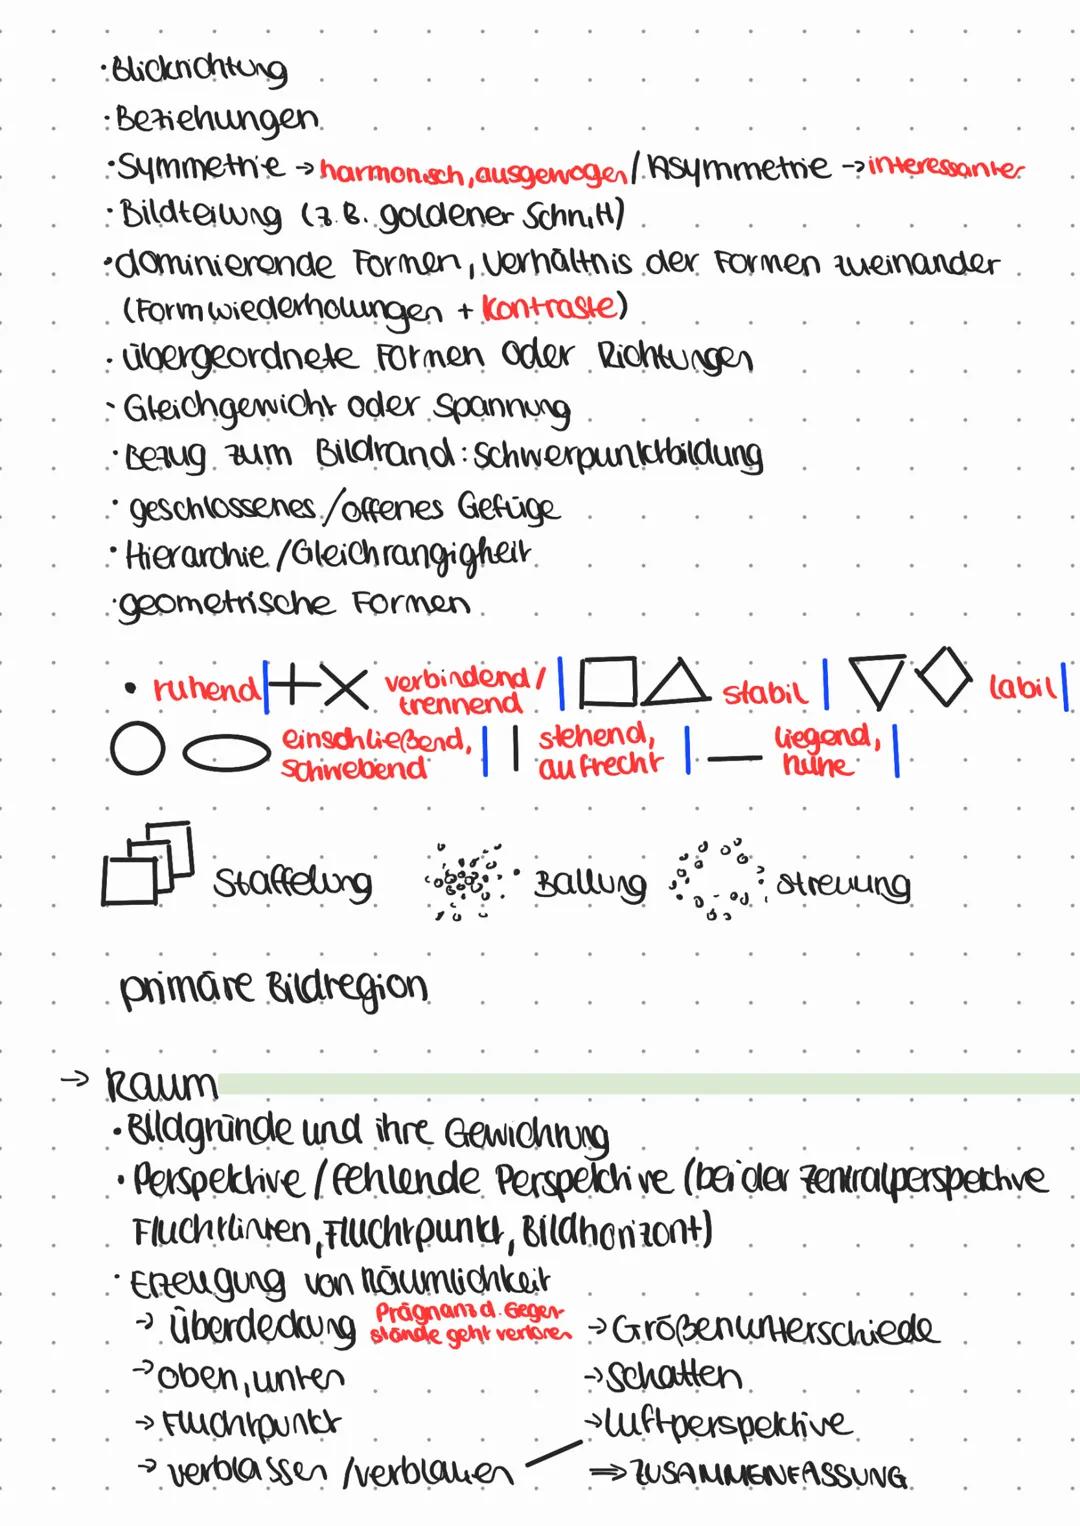 ·Blickrichtung
·Beziehungen
·Symmetrie → harmonisch, ausgewogen / Asymmetrie → interessanter
·Bildteilung (z.B. goldener Schnitt)
·dominierende Formen, Verhältnis der Formen zueinander
(Formwiederholungen + Kontraste)
·übergeordnete Formen oder Richtungen
·Gleichgewicht oder Spannung
·Bezug zum Bildrand: Schwerpunktbildung
·geschlossenes/offenes Gefüge
·Hierarchie/Gleichrangigkeit
·geometrische Formen
• ruhend | verbindend/ trennend | stabil | labil |
einschließend, schwebend | stehend, aufrecht | liegend, ruhe |
Staffelung Ballung Streuung
primäre Bildregion
→ Raum
·Bildgründe und ihre Gewichtung
·Perspektive/fehlende Perspektive (bei der Zentralperspektive
Fluchtlinien, Fluchtpunkt, Bildhorizont)
·Erzeugung von Räumlichkeit
→ Überdeckung Prägnanz d. Gegen-stände geht verloren → Größenunterschiede
→ oben, unten → Schatten
→ Fluchtpunkt → Luftperspektive
→ verblassen/verblauen ⇒ ZUSAMMENFASSUNG